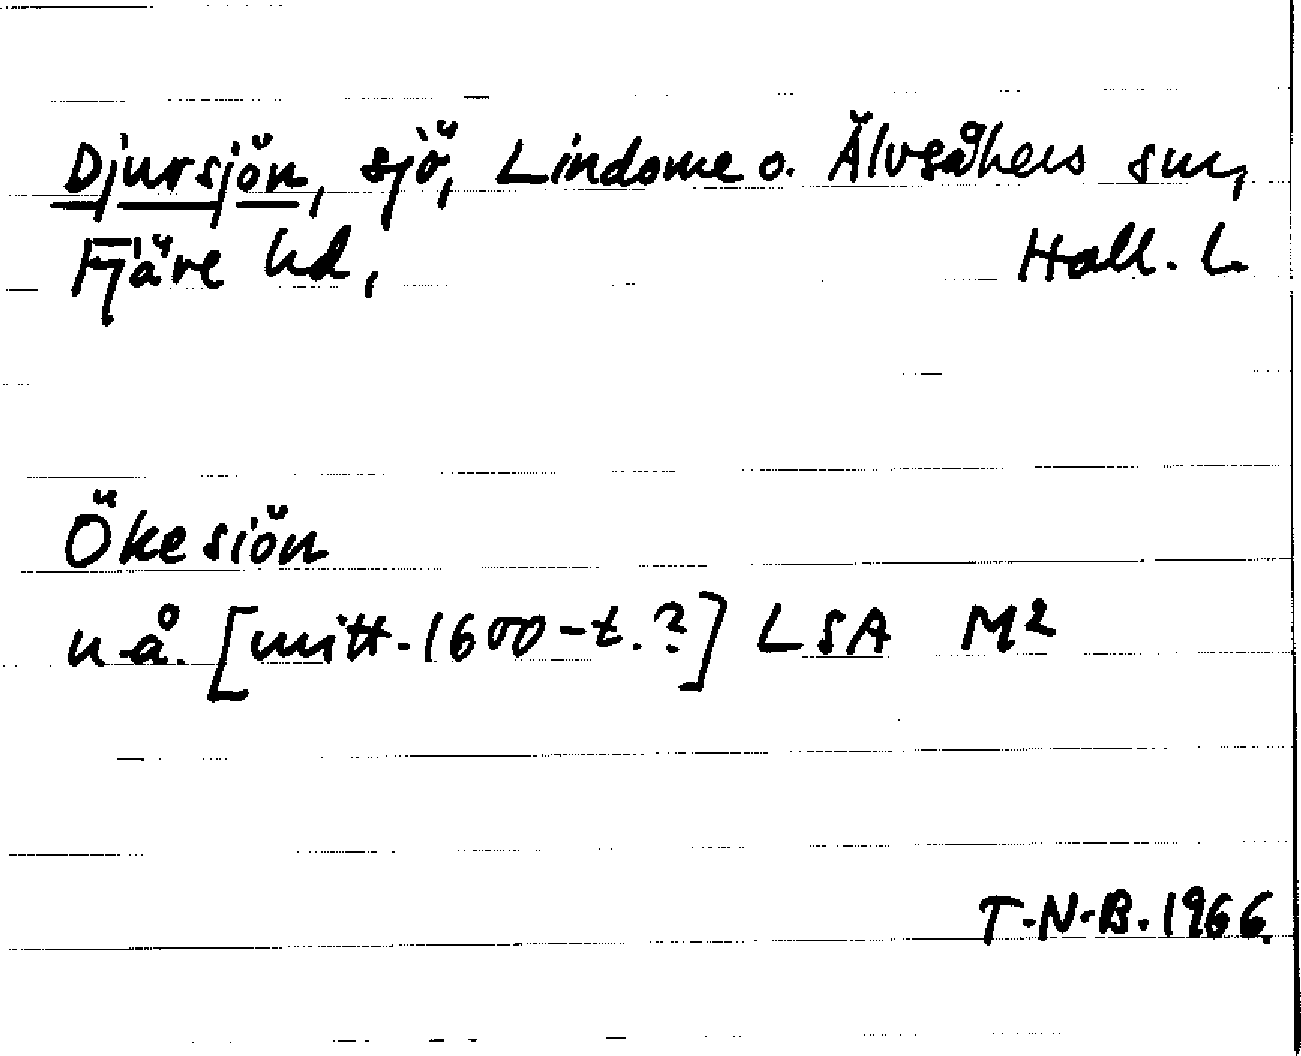 Djursjön, sjö, Lindome o. Älvsåkers snr,
Fjäre hd, Hall. l.
Ökesiön
u.å. [mitt. 1600-t.?] LSA M2
T.N.B. 1966.